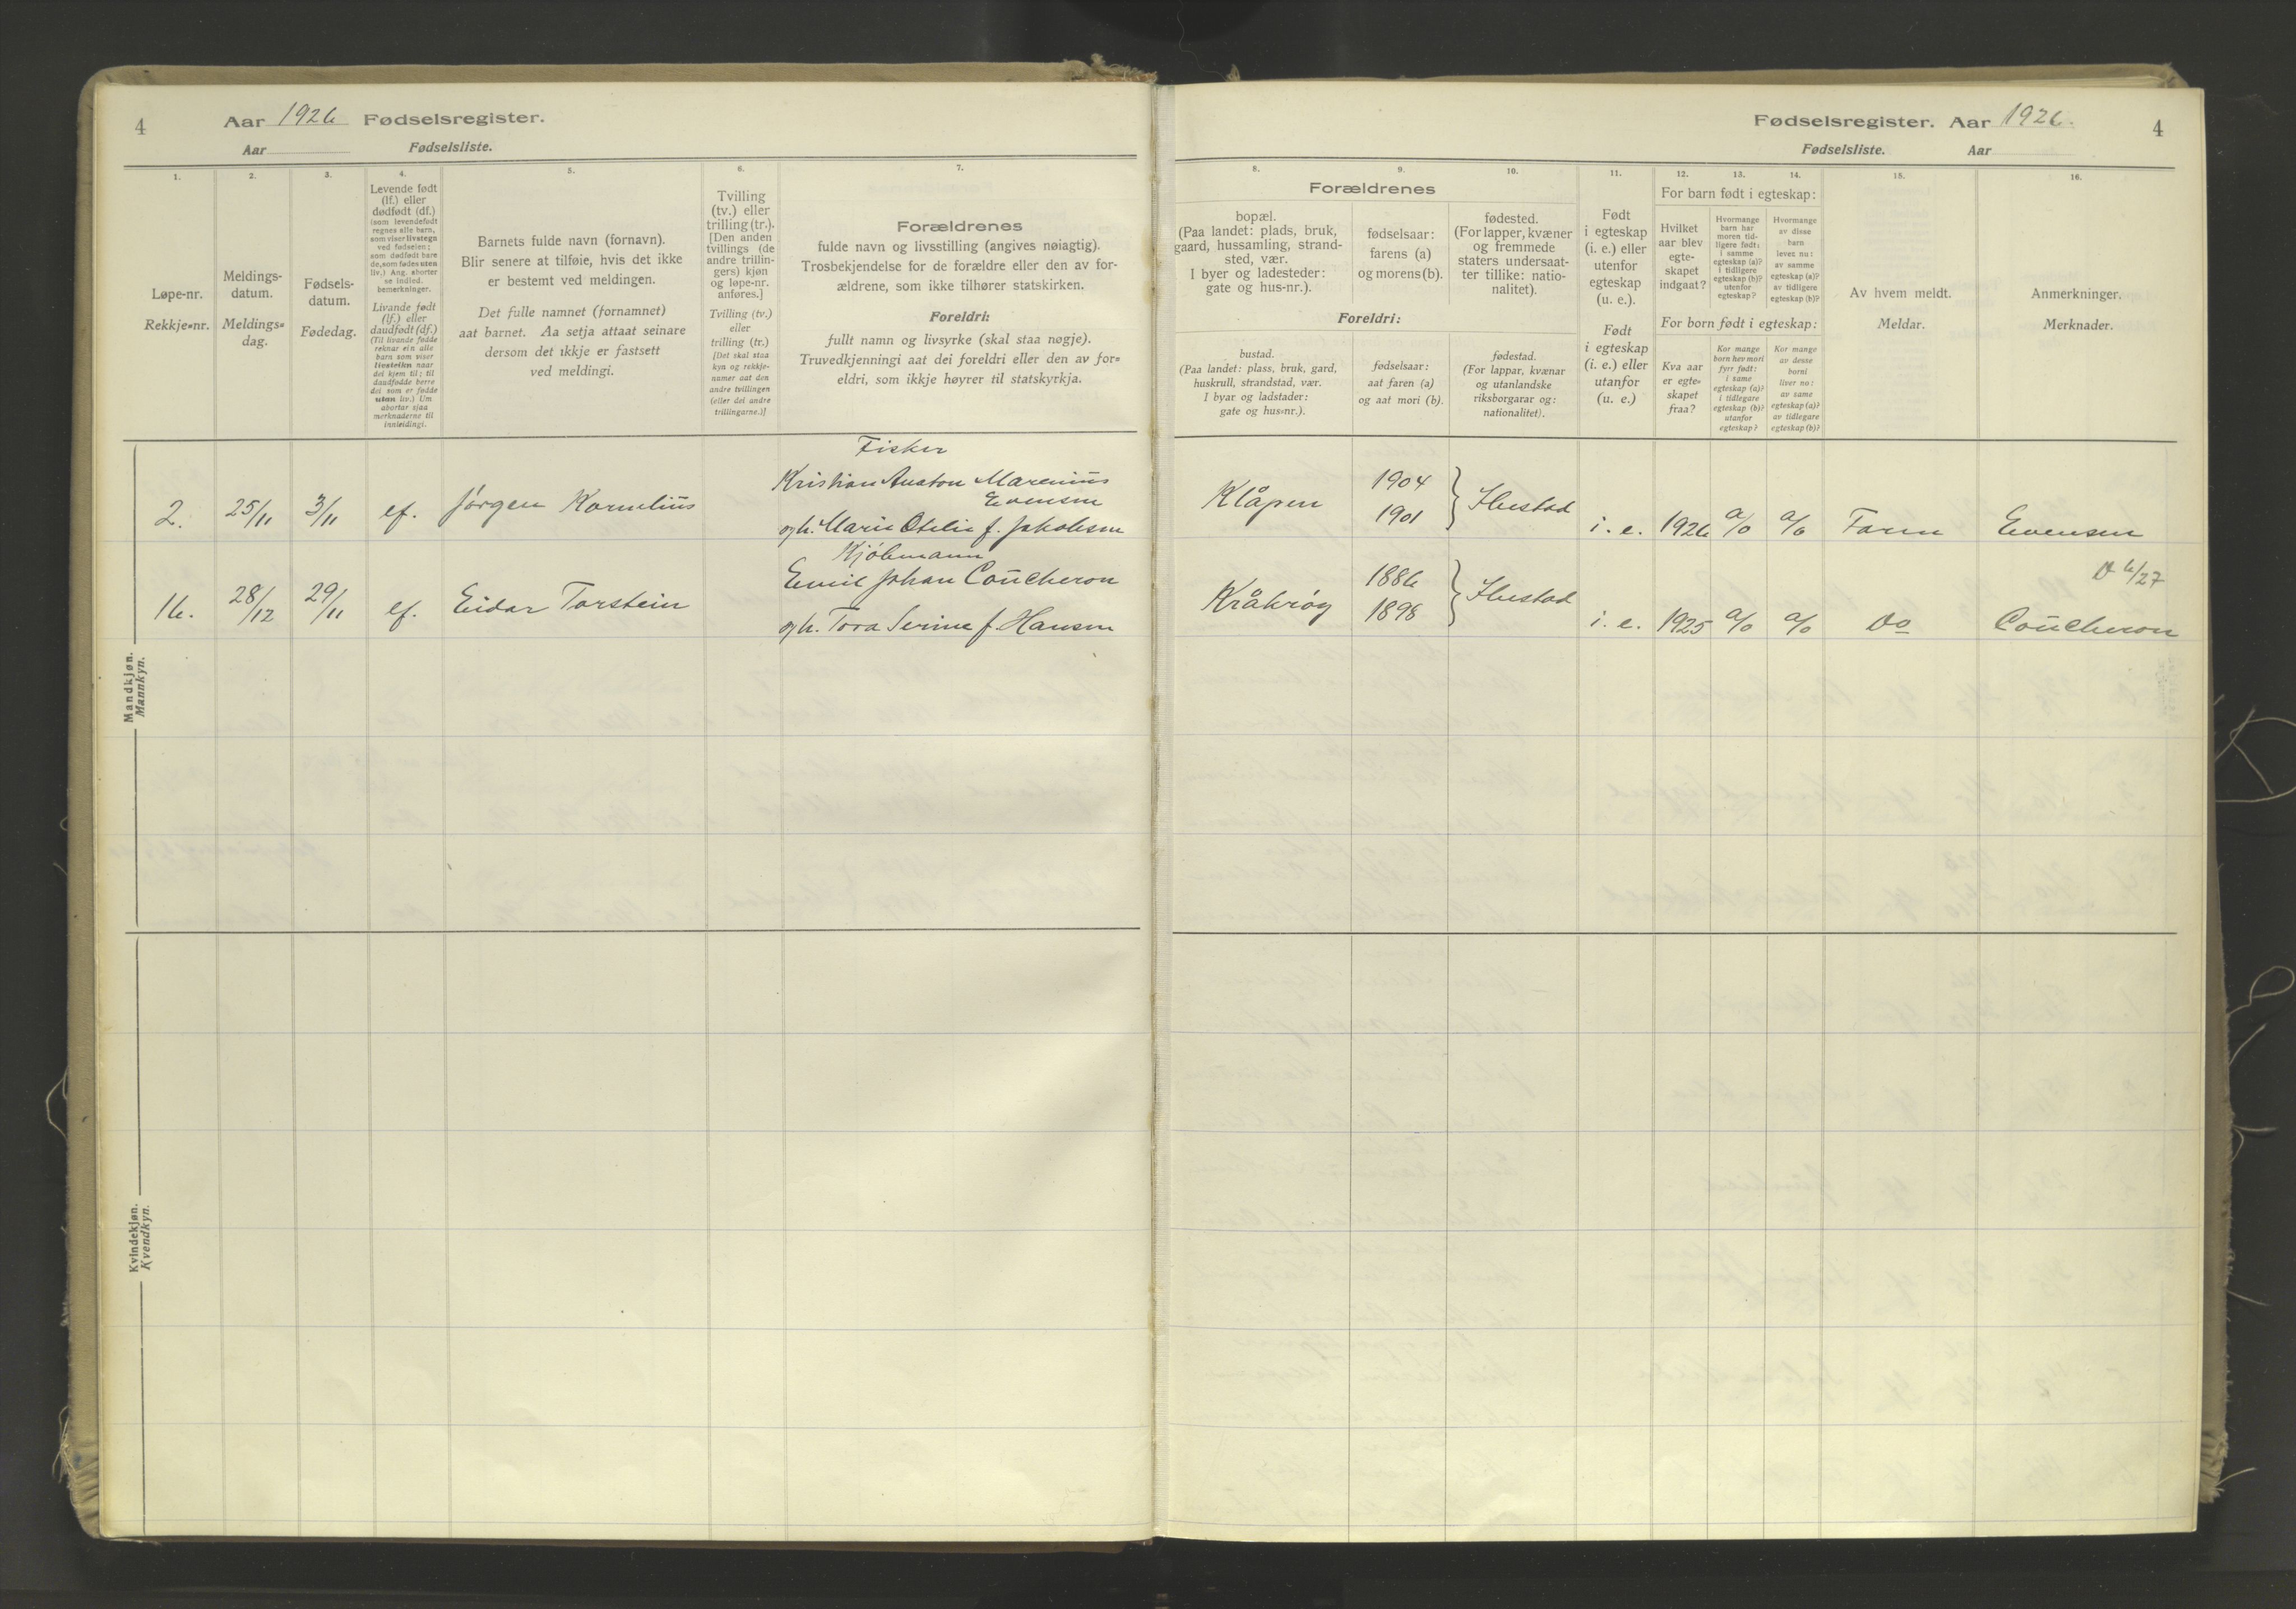 4
Aar 1926 Fødselsregister.
Aar Fødselsliste.
Fødselsregister. Aar 1926.
4
Fødselsliste. Aar
1.
Løpe-nr.
Rekkje=nr.
2.
Meldings-
datum.
Meldings=
dag.
3.
Fødsels-
datum.
Fødedag.
4.
Levende født
(lf.) eller
dødfødt (df.)
(som levendefødt
regnes alle barn,
som viser livstegn
ved fødselen;
som dødfødt bare
de, som fødes uten
liv.) Ang. aborter
se indled.
bemerkninger.
Livande født
(lf.) eller
daudfødt (df.)
(Til livande fødde
reknar ein alle
barn som viser
livsteikn naar
dei kjem til; til
daudfødde berre
dei som er fødde
utan liv.) Um
abortar sjaa
merknaderne til
innleidingi.
5.
Barnets fulde navn (fornavn).
Blir senere at tilføie, hvis det ikke
er bestemt ved meldingen.
Det fulle namnet (fornamnet)
aat barnet. Aa setja attaat seinare
dersom det ikkje er fastsett
ved meldingi.
6.
Tvilling
(tv.) eller
trilling (tr.).
[Den anden
tvillings (de
andre trillin-
gers) kjøn
og løpe-nr.
anføres.]
Tvilling (tv.)
eller
trilling (tr.)
[Det skal staa
kyn og rekkje-
numer aat den
andre tvillingen
(eller dei andre
trillingarne.)]
7.
Forældrenes
fulde navn og livsstilling (angives nøiagtig).
Trosbekjendelse for de forældre eller den av for-
ældrene, som ikke tilhører statskirken.
Foreldri:
fullt namn og livsyrke (skal staa nøgje).
Truvedkjenningi aat dei foreldri eller den av for=
eldri, som ikkje høyrer til statskyrkja.
8. 9. 10.
Forældrenes
bopæl.
(Paa landet: plads, bruk,
gaard, hussamling, strand-
sted, vær.
I byer og ladesteder:
gate og hus-nr.).
fødselsaar:
farens (a)
og morens (b).
fødested.
(For lapper, kvæner
og fremmede
staters undersaat-
ter tillike: natio-
nalitet).
Foreldri:
bustad.
(Paa landet: plass, bruk, gard,
huskrull, strandstad, vær.
I byar og ladstader:
gate og hus=nr.).
fødselsaar:
aat faren (a)
og aat mori (b).
fødestad.
(For lappar, kvænar
og utanlandske
riksborgarar og:
nationalitet).
11.
Født
i egteskap
(i. e.) eller
utenfor
egteskap
(u. e.).
Født
i egteskap
(i. e.) eller
utanfor
(u. e.)
12. 13. 14.
For barn født i egteskap:
Hvilket
aar blev
egte-
skapet
indgaat?
Hvormange
barn har
moren tid-
ligere født:
i samme
egteskap (a)?
i tidligere
egteskap (b)?
utenfor
egteskap?
Hvormange
av disse
barn
lever nu:
av samme
egteskap (a)?
av tidligere
egteskap (b)?
For born født i egteskap:
Kva aar
er egte=
skapet
fraa?
Kor mange
born hev mori
fyrr født:
i same
egteskap (a)?
i tidlegare
egteskap (b)?
utanfor
egteskap?
Kor mange
av desse
borni
liver no:
av same
egteskap (a)?
av tidlegare
egteskap (b)?
15.
Av hvem meldt.
Meldar.
16.
Anmerkninger.
Merknader.
Mandkjøn.
Mannkyn.
Fisker
Kristian Anton Marenius
Evensen
2. 25/11 3/11 lf. Jørgen Kornelius
og h. Marie Otelie f. Jakobsen
Klåpen 1904 1901 } Ibestad i. e. 1926 a/0 a/0 Faren Evensen
Kjøbmann
Emil Johan Coucheron
16. 28/12 29/11 lf. Eidar Torstein
og h. Tora Serine f. Hansen
Kråkrøy 1886 1898 } Ibestad i. e. 1925 a/0 a/0 Do Coucheron
6/27
Kvindekjøn.
Kvendkyn.